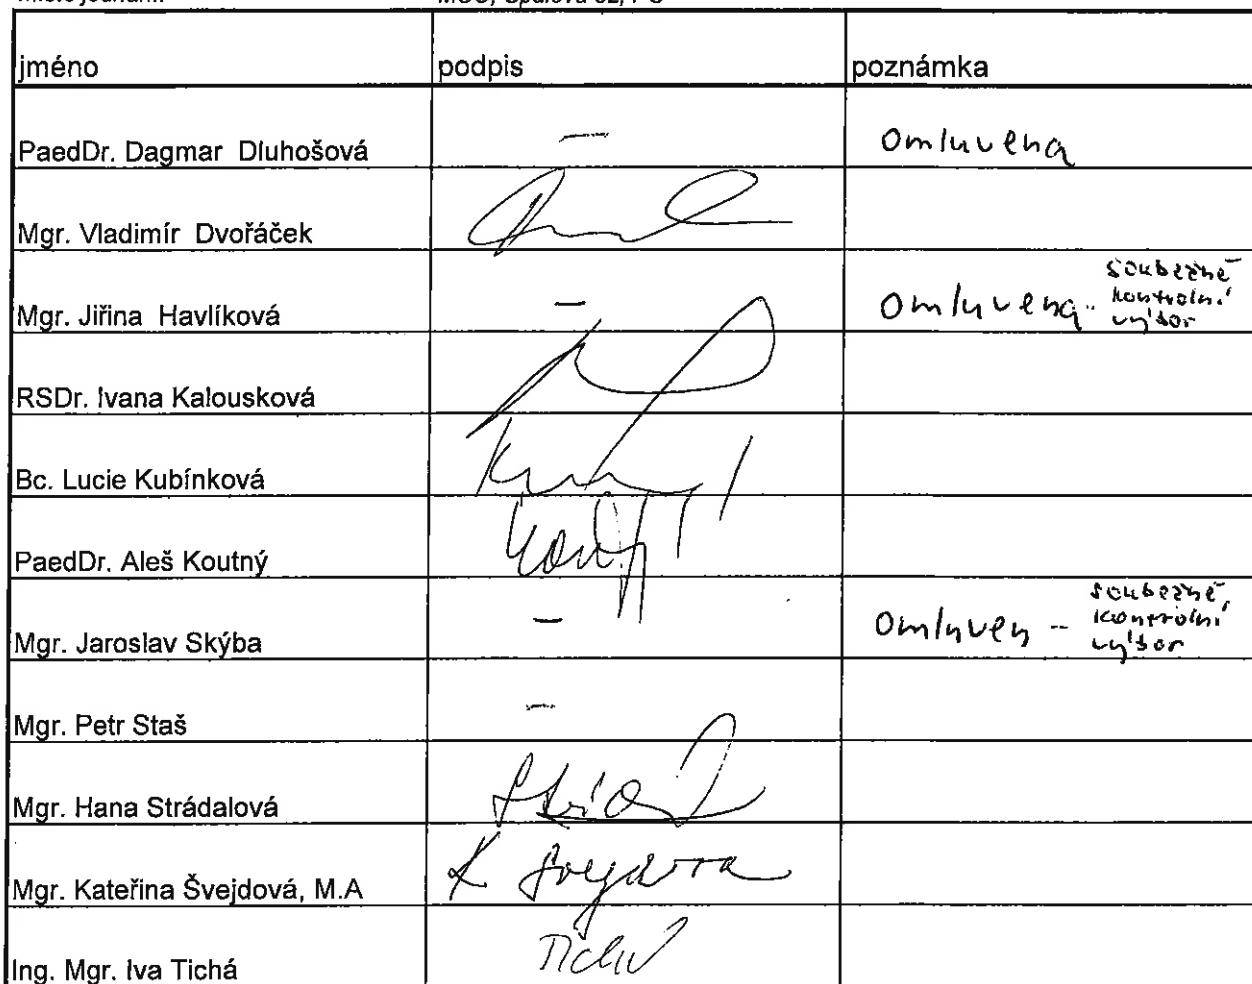 jméno podpis poznámka
PaedDr. Dagmar Dluhošová — omluvena
Mgr. Vladimír Dvořáček
Mgr. Jiřina Havlíková — omluvena - souběžně
kontrolní
výbor
RSDr. Ivana Kalousková
Bc. Lucie Kubínková
PaedDr. Aleš Koutný
Mgr. Jaroslav Skýba — omluven -- souběžně
kontrolní
výbor
Mgr. Petr Staš —
Mgr. Hana Strádalová
Mgr. Kateřina Švejdová, M.A K Švejdová
Ing. Mgr. Iva Tichá Tichá